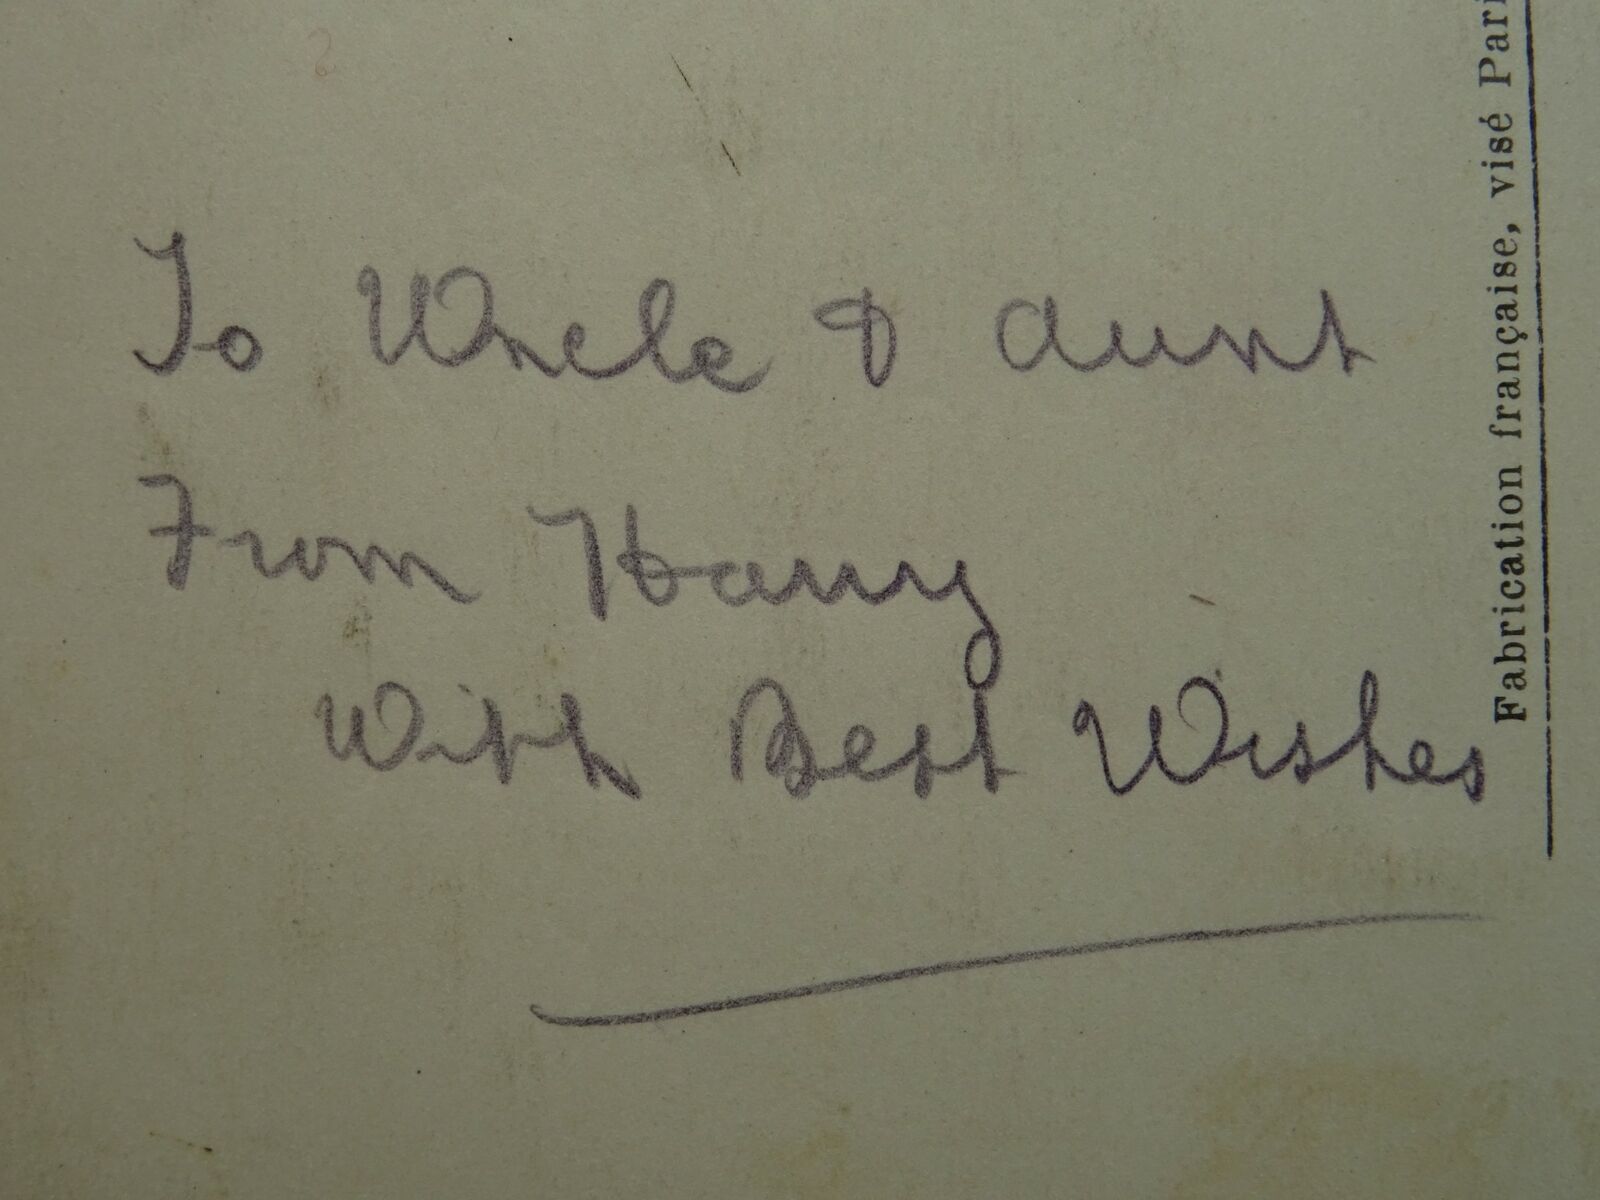 To Uncle & Aunt
From Harry
With Best Wishes
Fabrication française, visé Pari